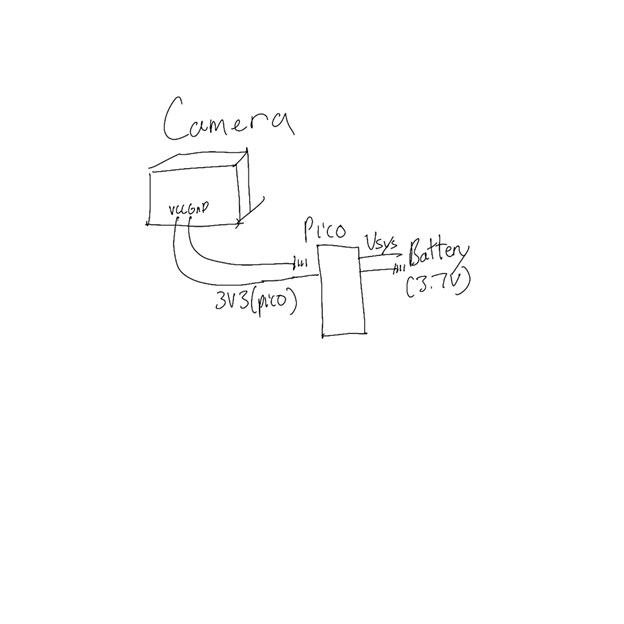 Camera
VCC GND
Pico
Vsys
Battery
(3.7V)
3V3(pico)